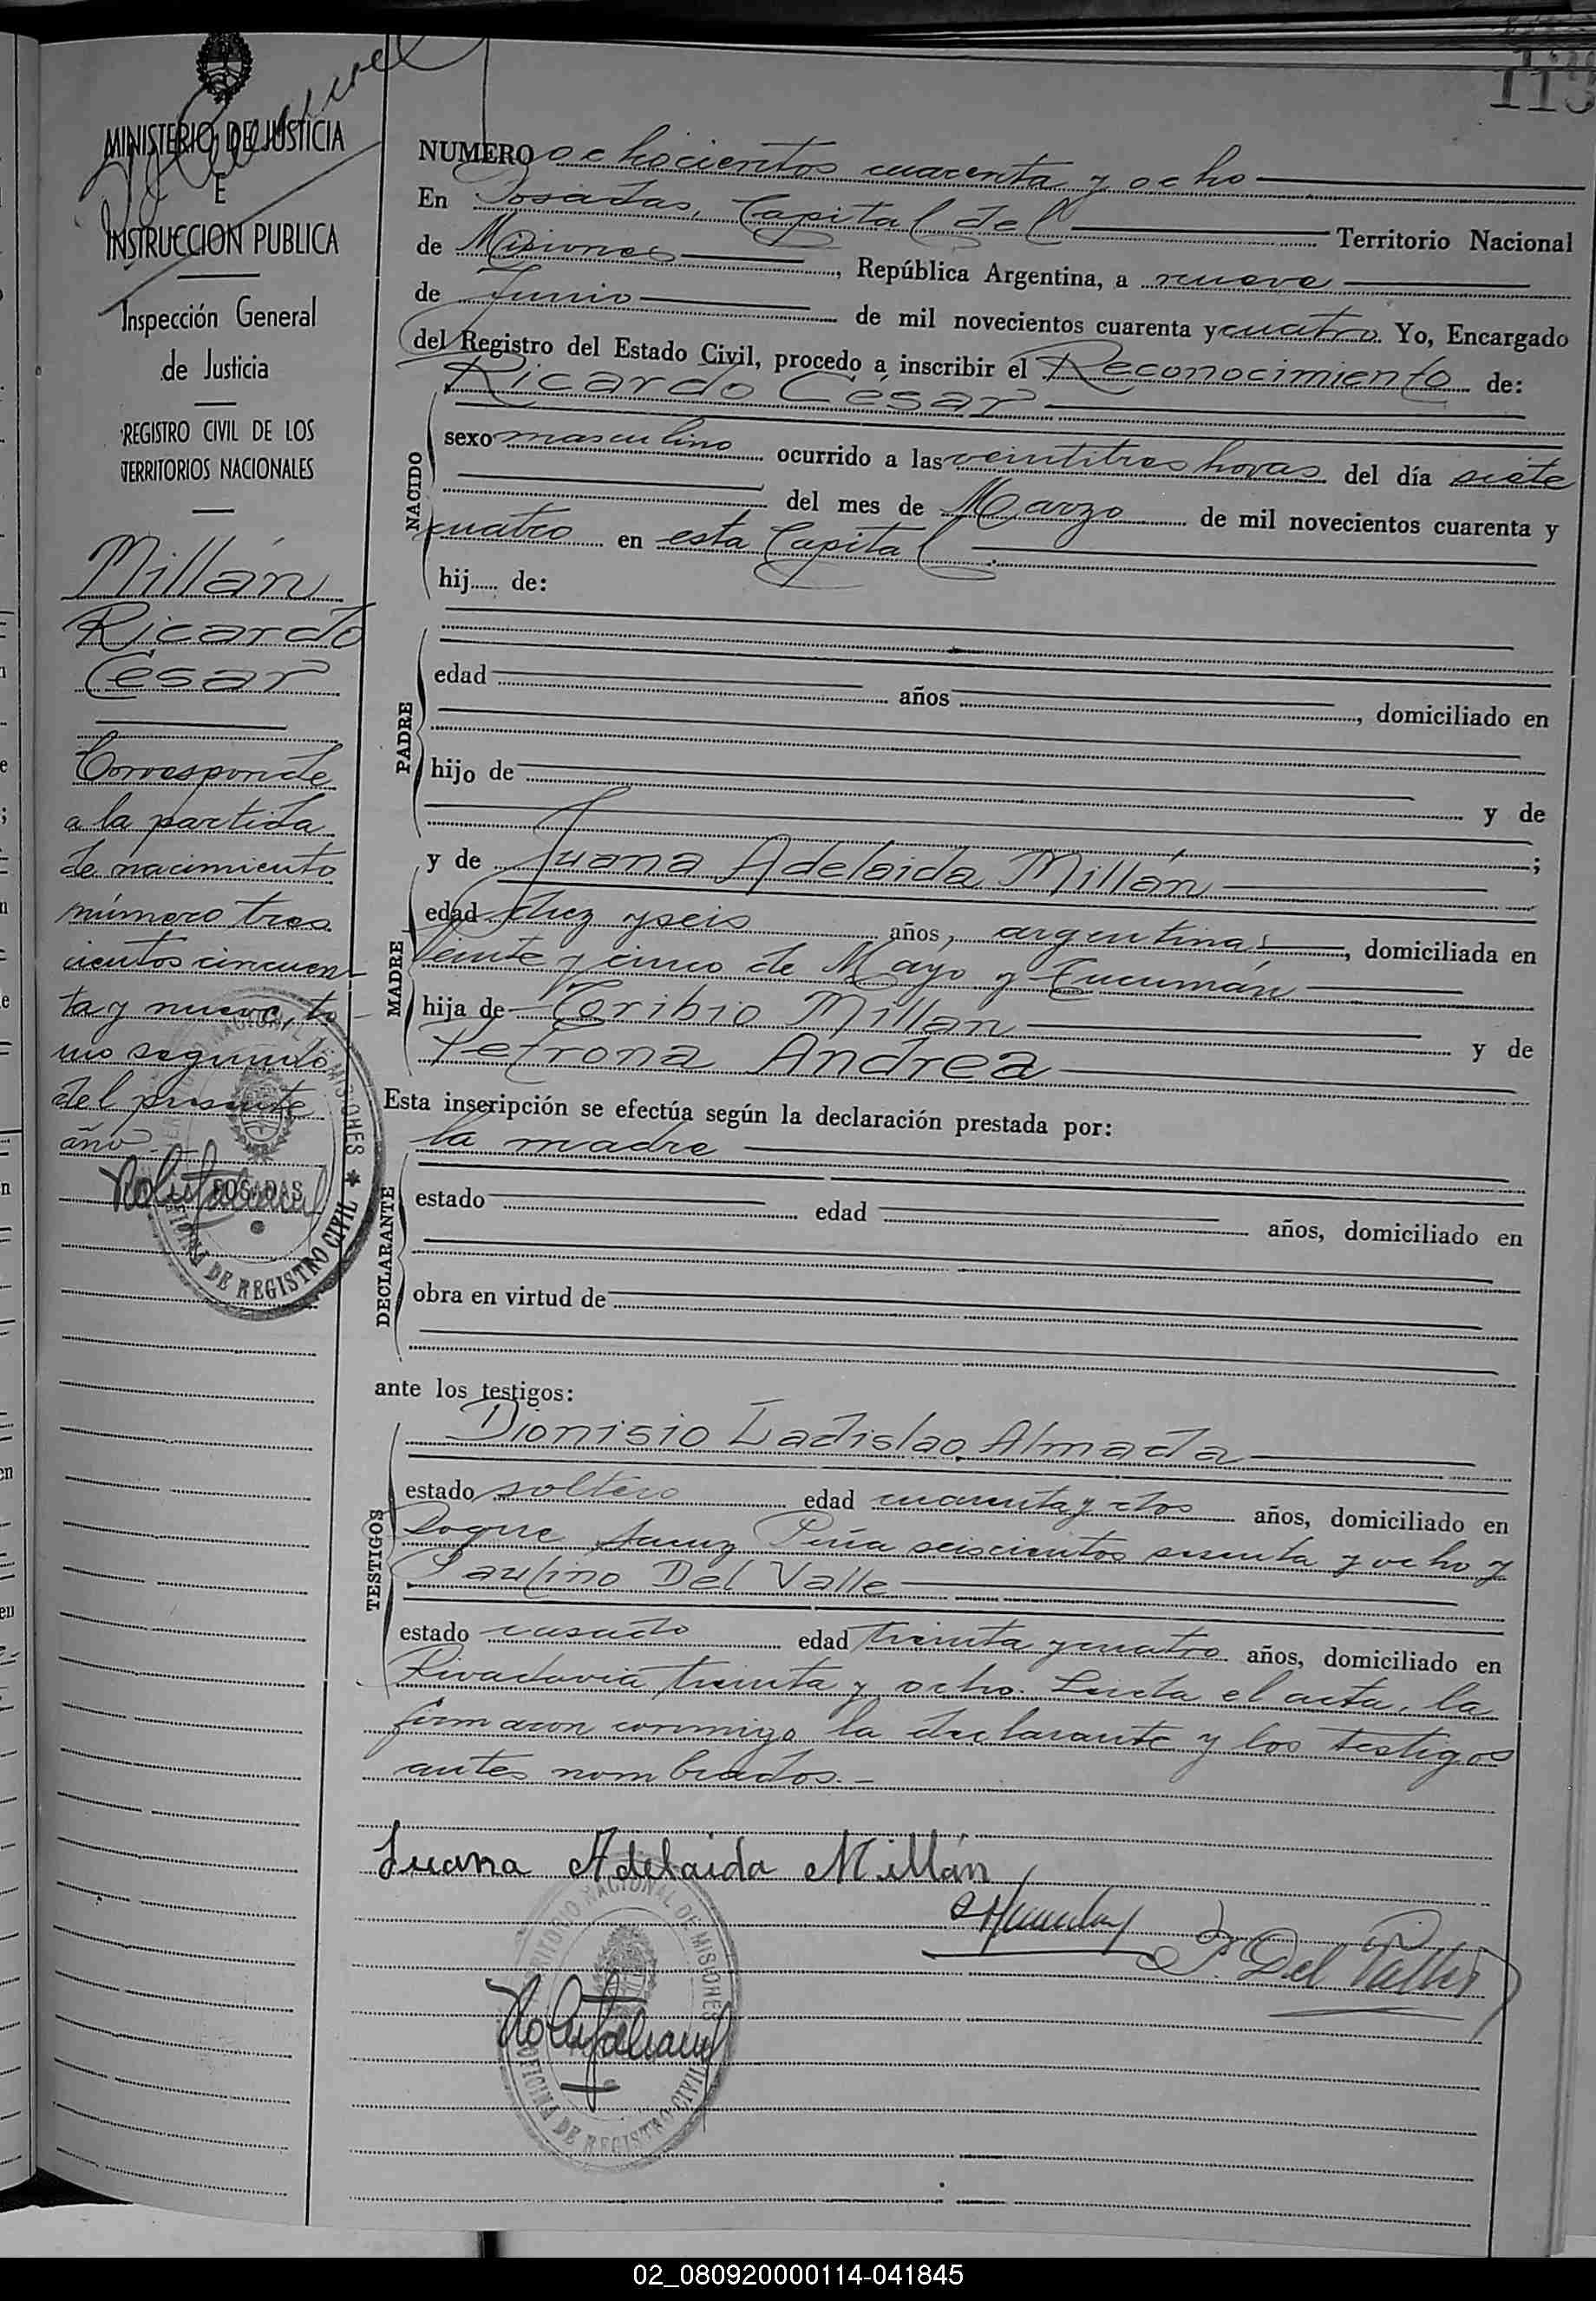 113
MINISTERIO DE JUSTICIA
E
INSTRUCCION PUBLICA
Inspección General
de Justicia
REGISTRO CIVIL DE LOS
TERRITORIOS NACIONALES
Millán
Ricardo
César
Corresponde
a la partida
de nacimiento
número tres
cientos cincuen-
ta y nueve, to-
mo segundo
del presente
año.-
POSADAS
OFICINA DE REGISTRO CIVIL
NUMERO ochocientos cuarenta y ocho
En Posadas, Capital del Territorio Nacional
de Misiones, República Argentina, a nueve
de Junio de mil novecientos cuarenta y cuatro. Yo, Encargado
del Registro del Estado Civil, procedo a inscribir el Reconocimiento de:
Ricardo César
NACIDO
sexo masculino ocurrido a las veintitres horas del día siete
del mes de Marzo de mil novecientos cuarenta y
cuatro en esta Capital.
hij..... de:
PADRE
edad años, domiciliado en
hijo de
y de
;
MADRE
y de Juana Adelaida Millán
edad diez y seis años, argentina, domiciliada en
Veinte y cinco de Mayo y Tucumán
hija de Toribio Millan y de
Petrona Andrea
Esta inscripción se efectúa según la declaración prestada por:
la madre
DECLARANTE
estado edad años, domiciliado en
obra en virtud de
ante los testigos:
TESTIGOS
Dionisio Ladislao Almada
estado soltero edad cuarenta y dos años, domiciliado en
Roque Saenz Peña seiscientos sesenta y ocho y
Paulino Del Valle
estado casado edad treinta y cuatro años, domiciliado en
Rivadavia treinta y ocho. Leida el acta, la
firmaron conmigo la declarante y los testigos
antes nombrados.-
Juana Adelaida Millán
P. Del Valle
TERRITORIO NACIONAL DE MISIONES
OFICINA DE REGISTRO CIVIL
02_080920000114-041845